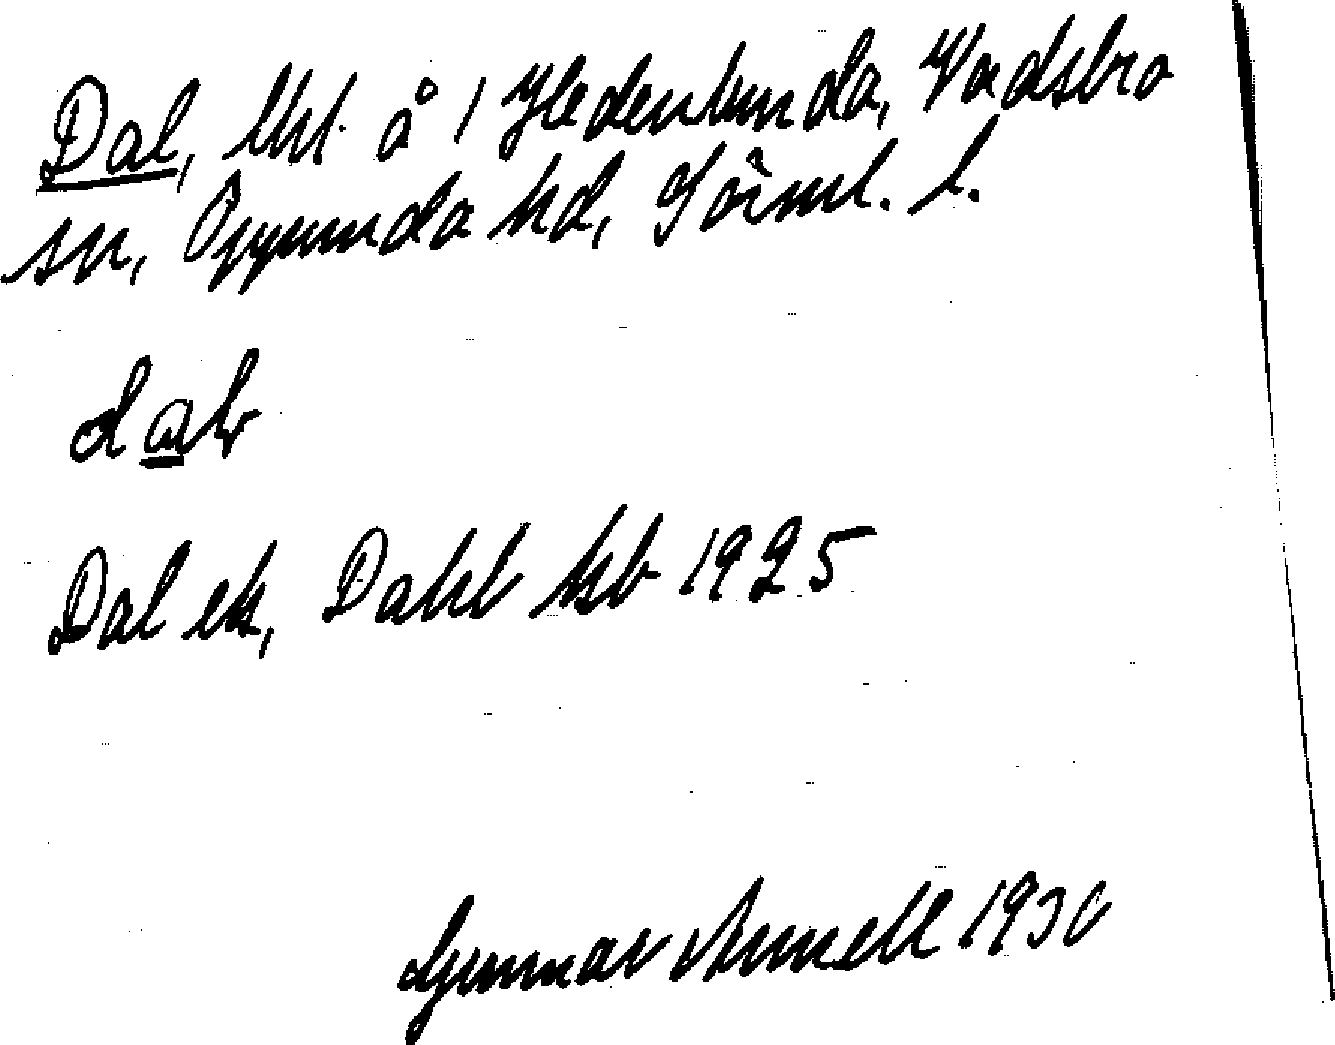 Dal, lht. å 1 Hedenlunda, Vadsbro
sn, Oppunda hd, Sörml. l.
dalv
Dal ek, Dahl ksb 1925
Gunnar Annell 1930